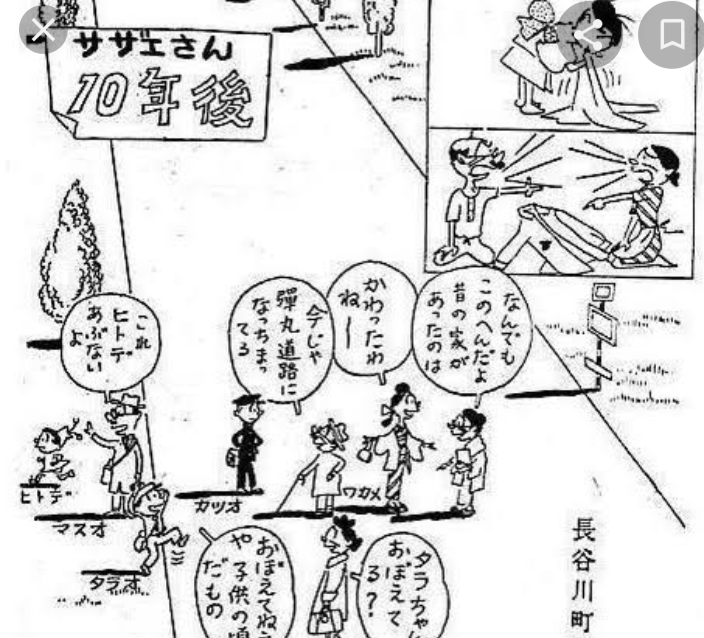 サザエさん
10年後
なんでも
このへんだよ
昔の家が
あったのは
かわったわ
ねー
今じゃ
彈丸道路に
なっちまっ
てる
これ
ヒトデ
あぶない
よ
ヒトデ
マスオ
タラオ
カツオ
ワカメ
長谷川町
タラちゃん
おぼえて
る?
おぼえてねえ
や子供の頃
だもの